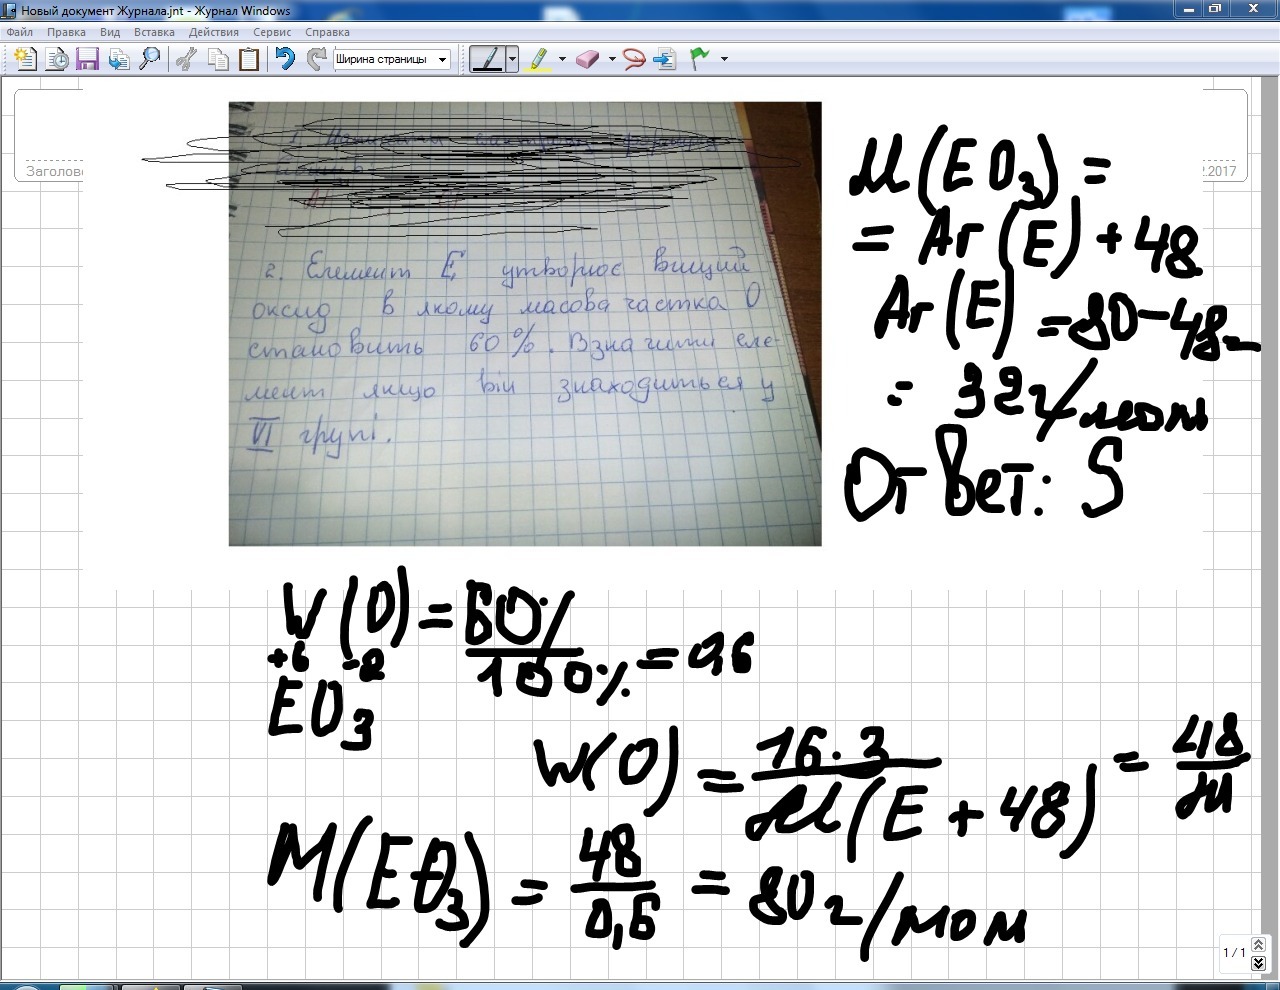 Новый документ Журнала.jnt - Журнал Windows
Файл Правка Вид Вставка Действия Сервис Справка
Ширина страницы
Заголово
.2017
2. Елемент Е утворює вищий
оксид в якому масова частка О
становить 60%. Взначити еле-
мент якщо він знаходиться у
VI групі.
M(EO3) =
= Ar(E) + 48
Ar(E) = 80-48=
= 32г/моль
Ответ: S
W(O) = 60% / 100% = 0,6
+6 -2
EO3
W(O) = 16·3 / M(E+48) = 48 / M
M(EO3) = 48 / 0,6 = 80г/моль
1 / 1